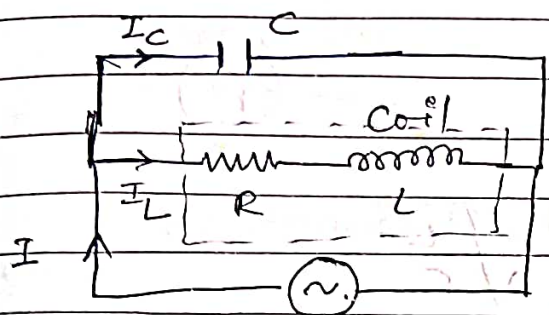 I_C C
Coil
I_L R L
I
~